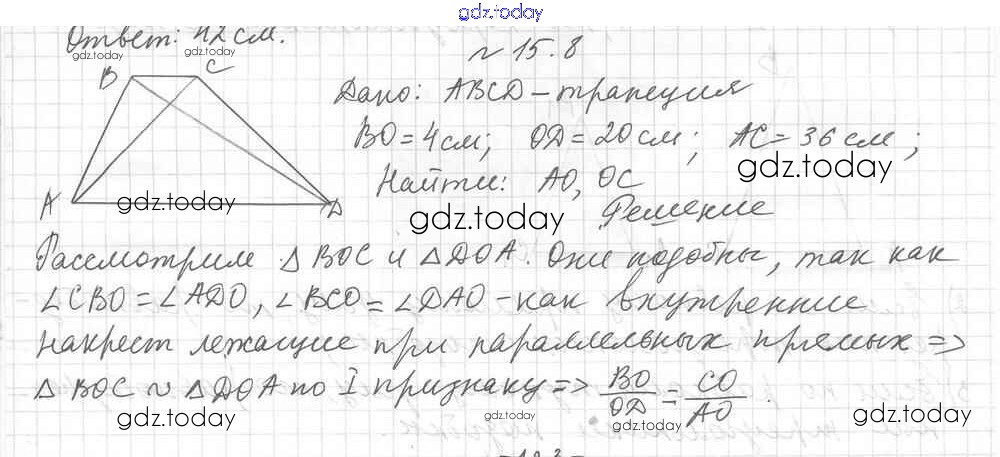 gdz.today
Ответ: 42 см.
gdz.today
№ 15.8
B C
Дано: ABCD – трапеция
BO = 4 см; OD = 20 см; AC = 36 см;
gdz.today
Найти: AO, OC
A D
gdz.today
gdz.today
Решение
Рассмотрим △ BOC и △ DOA. Они подобны, так как
∠CBO = ∠ADO, ∠BCO = ∠DAO – как внутренние
накрест лежащие при параллельных прямых =>
△ BOC ~ △ DOA по I признаку => BO/OD = CO/AO.
gdz.today
gdz.today
gdz.today